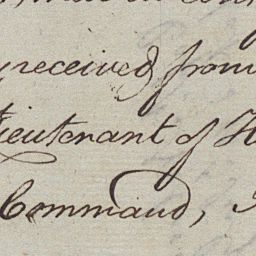 received from
Lieutenant of H
Command,